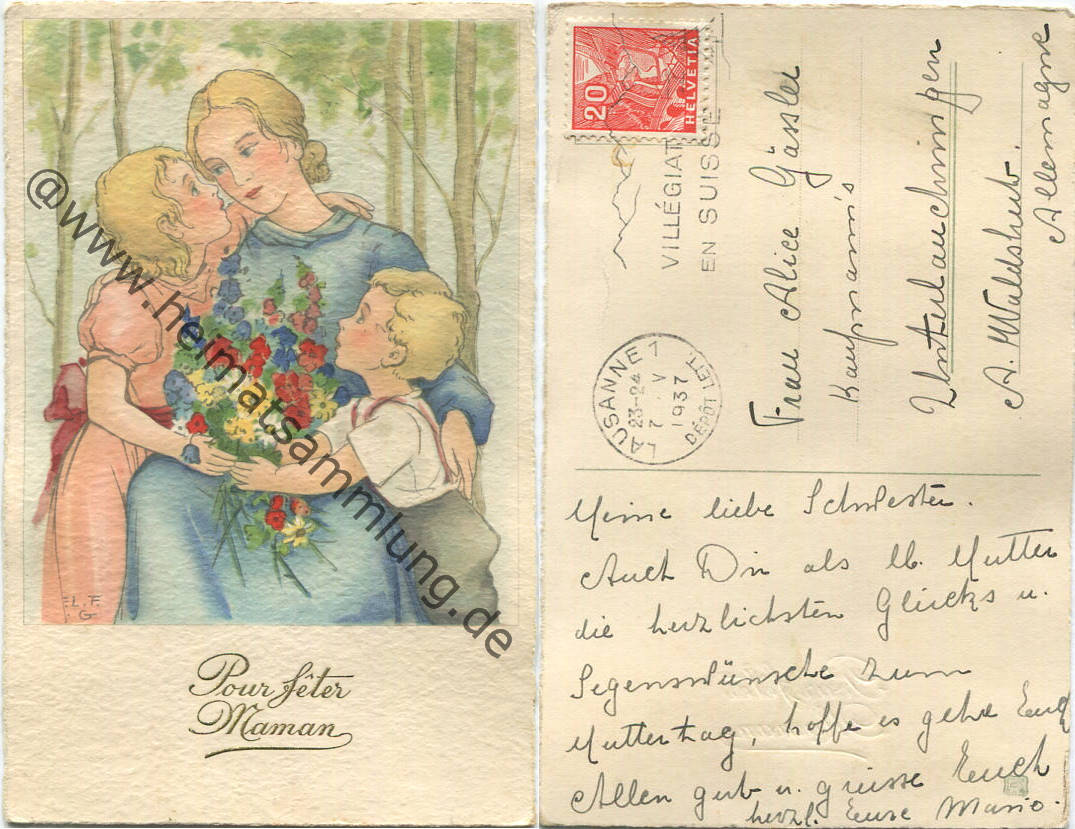 @www.heimatsammlung.de
E.L.F.
G
Pour fêter
Maman
20
HELVETIA
VILLÉGIAT
EN SUISSE
LAUSANNE 1
23-24
7 V
1937
DÉPÔT LETT.
Frau Alice Gässler
Kaufmann's
Unterlauchringen
A. Waldshut.
Allemagne
Meine liebe Schwester.
Auch Dir als lb. Mutter
die herzlichsten Glücks u.
Segenswünsche zum
Muttertag, hoffe es gehe Euch
Allen gut u. grüsse Euch
herzl. Eure Mario.